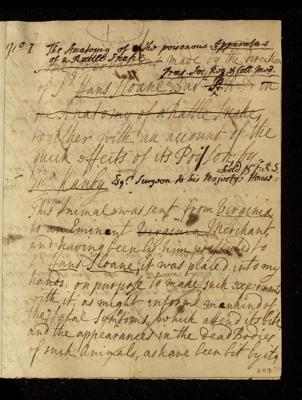 No. I The Anatomy of the poisonous Apparatus
of a Rattle Snake
made by the direction
Præs. Soc. Reg. & Coll. Med.
of Sr. Hans Sloane Bar. on
the Anatomy of a Rattle Snake,
together with an account of the
quick effects of its Poison, by
Mr. Ranby Esqr. Surgeon to his Majesty's House-
hold F.R.S.
This Animal was sent from Virginia
to an Eminent Virginia Merchant
and having been by him presented to
Sr. Hans Sloane, it was placed into my
hands, on purpose to make such experiments
with it, as might inform mankind of
the fatal Symptoms, which attend its bite
and the appearances in the dead Bodies
of such Animals, as have been bit by it,